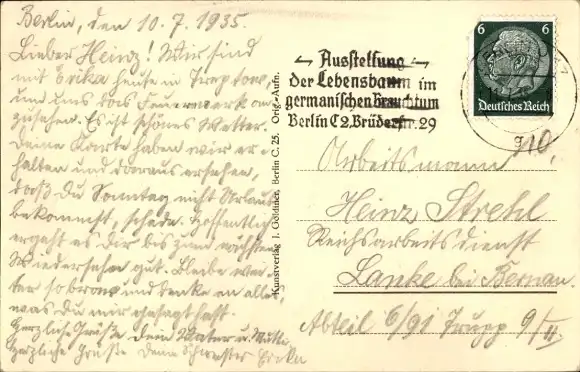 Berlin, den 10.7.1935.
Lieber Heinz! Wir sind
mit Erika heute in Treptow,
um uns das Feuerwerk an
zusehen. Es ist schönes Wetter.
Deine Karte haben wir er-
halten und daraus ersehen,
daß Du Sonntag nicht Urlaub
bekommst, schade. Hoffentlich
ergeht es Dir bis zum nächsten
Wiedersehn gut. Bleibe wei-
ter so brav und denke an alles,
was Du mir gesagt hast.
Herzliche Grüße Dein Vater u. Mutti
Herzliche Grüße Deine Schwester Erika
Kunstverlag J. Goldiner, Berlin C. 25. Orig.-Aufn.
Ausstellung
der Lebensbaum im
germanischen Brauchtum
Berlin C2, Brüderstr. 29
6 6
Deutsches Reich
Arbeitsmann
Heinz Strehl
Reichsarbeitsdienst
Lanke bei Bernau.
Abteil 6/91 Trupp 9/II